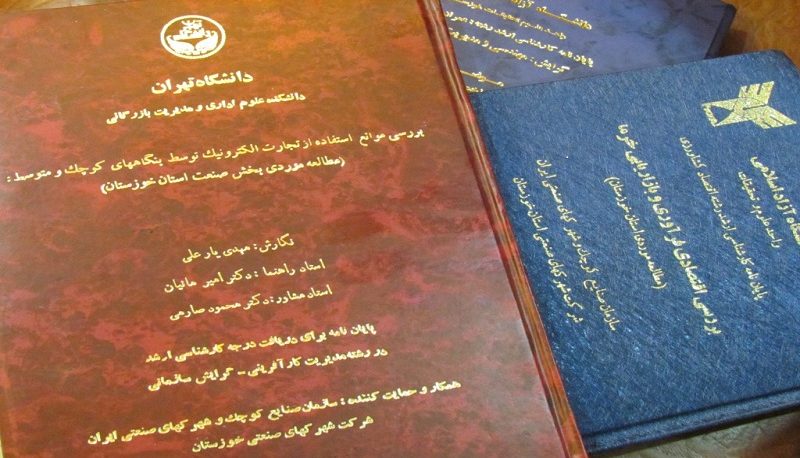 دانشگاه تهران
دانشکده علوم اداری و مدیریت بازرگانی
بررسی موانع استفاده از تجارت الکترونیک توسط بنگاههای کوچک و متوسط :
(مطالعه موردی بخش صنعت استان خوزستان)
نگارش : مهدی یار علی
استاد راهنما : دکتر امیر مانیان
استاد مشاور : دکتر محمود صارمی
پایان نامه برای دریافت درجه کارشناسی ارشد
در رشته مدیریت کارآفرینی - گرایش سازمانی
همکار و حمایت کننده : سازمان صنایع کوچک و شهرکهای صنعتی ایران
شرکت شهرکهای صنعتی خوزستان
دانشگاه آزاد
پایان نامه کارشناسی ارشد رشته :
گرایش : مهندسی و مدیریت
دانشگاه آزاد اسلامی
واحد علوم و تحقیقات
پایان نامه کارشناسی ارشد رشته اقتصاد کشاورزی
بررسی اقتصادی فرآوری و بازاریابی خرما
(مطالعه موردی استان خوزستان)
سازمان صنایع کوچک و شهرکهای صنعتی ایران
شرکت شهرکهای صنعتی استان خوزستان